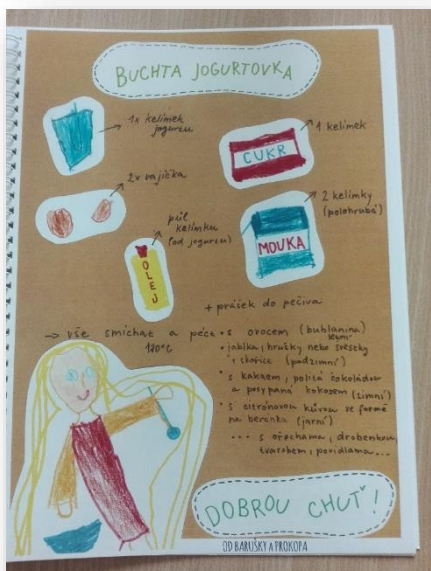 BUCHTA JOGURTOVKA
1x kelímek
jogurtu
1 kelímek
CUKR
2x vajíčka
2 kelímky
(polohrubá)
MOUKA
půl
kelímku
(od jogurtu)
OLEJ
+ prášek do pečiva
→ vše smíchat a péct
180°C
• s ovocem (bublanina)
letní
• jablka, hrušky nebo švestky
+ skořice (podzimní)
• s kakaem, politá čokoládou
a posypaná kokosem (zimní)
• s citrónovou kůrou ve formě
na beránka (jarní)
... s ořechama, drobenkou,
tvarohem, povidlama...
DOBROU CHUŤ!
OD BARUŠKY A PROKOPA